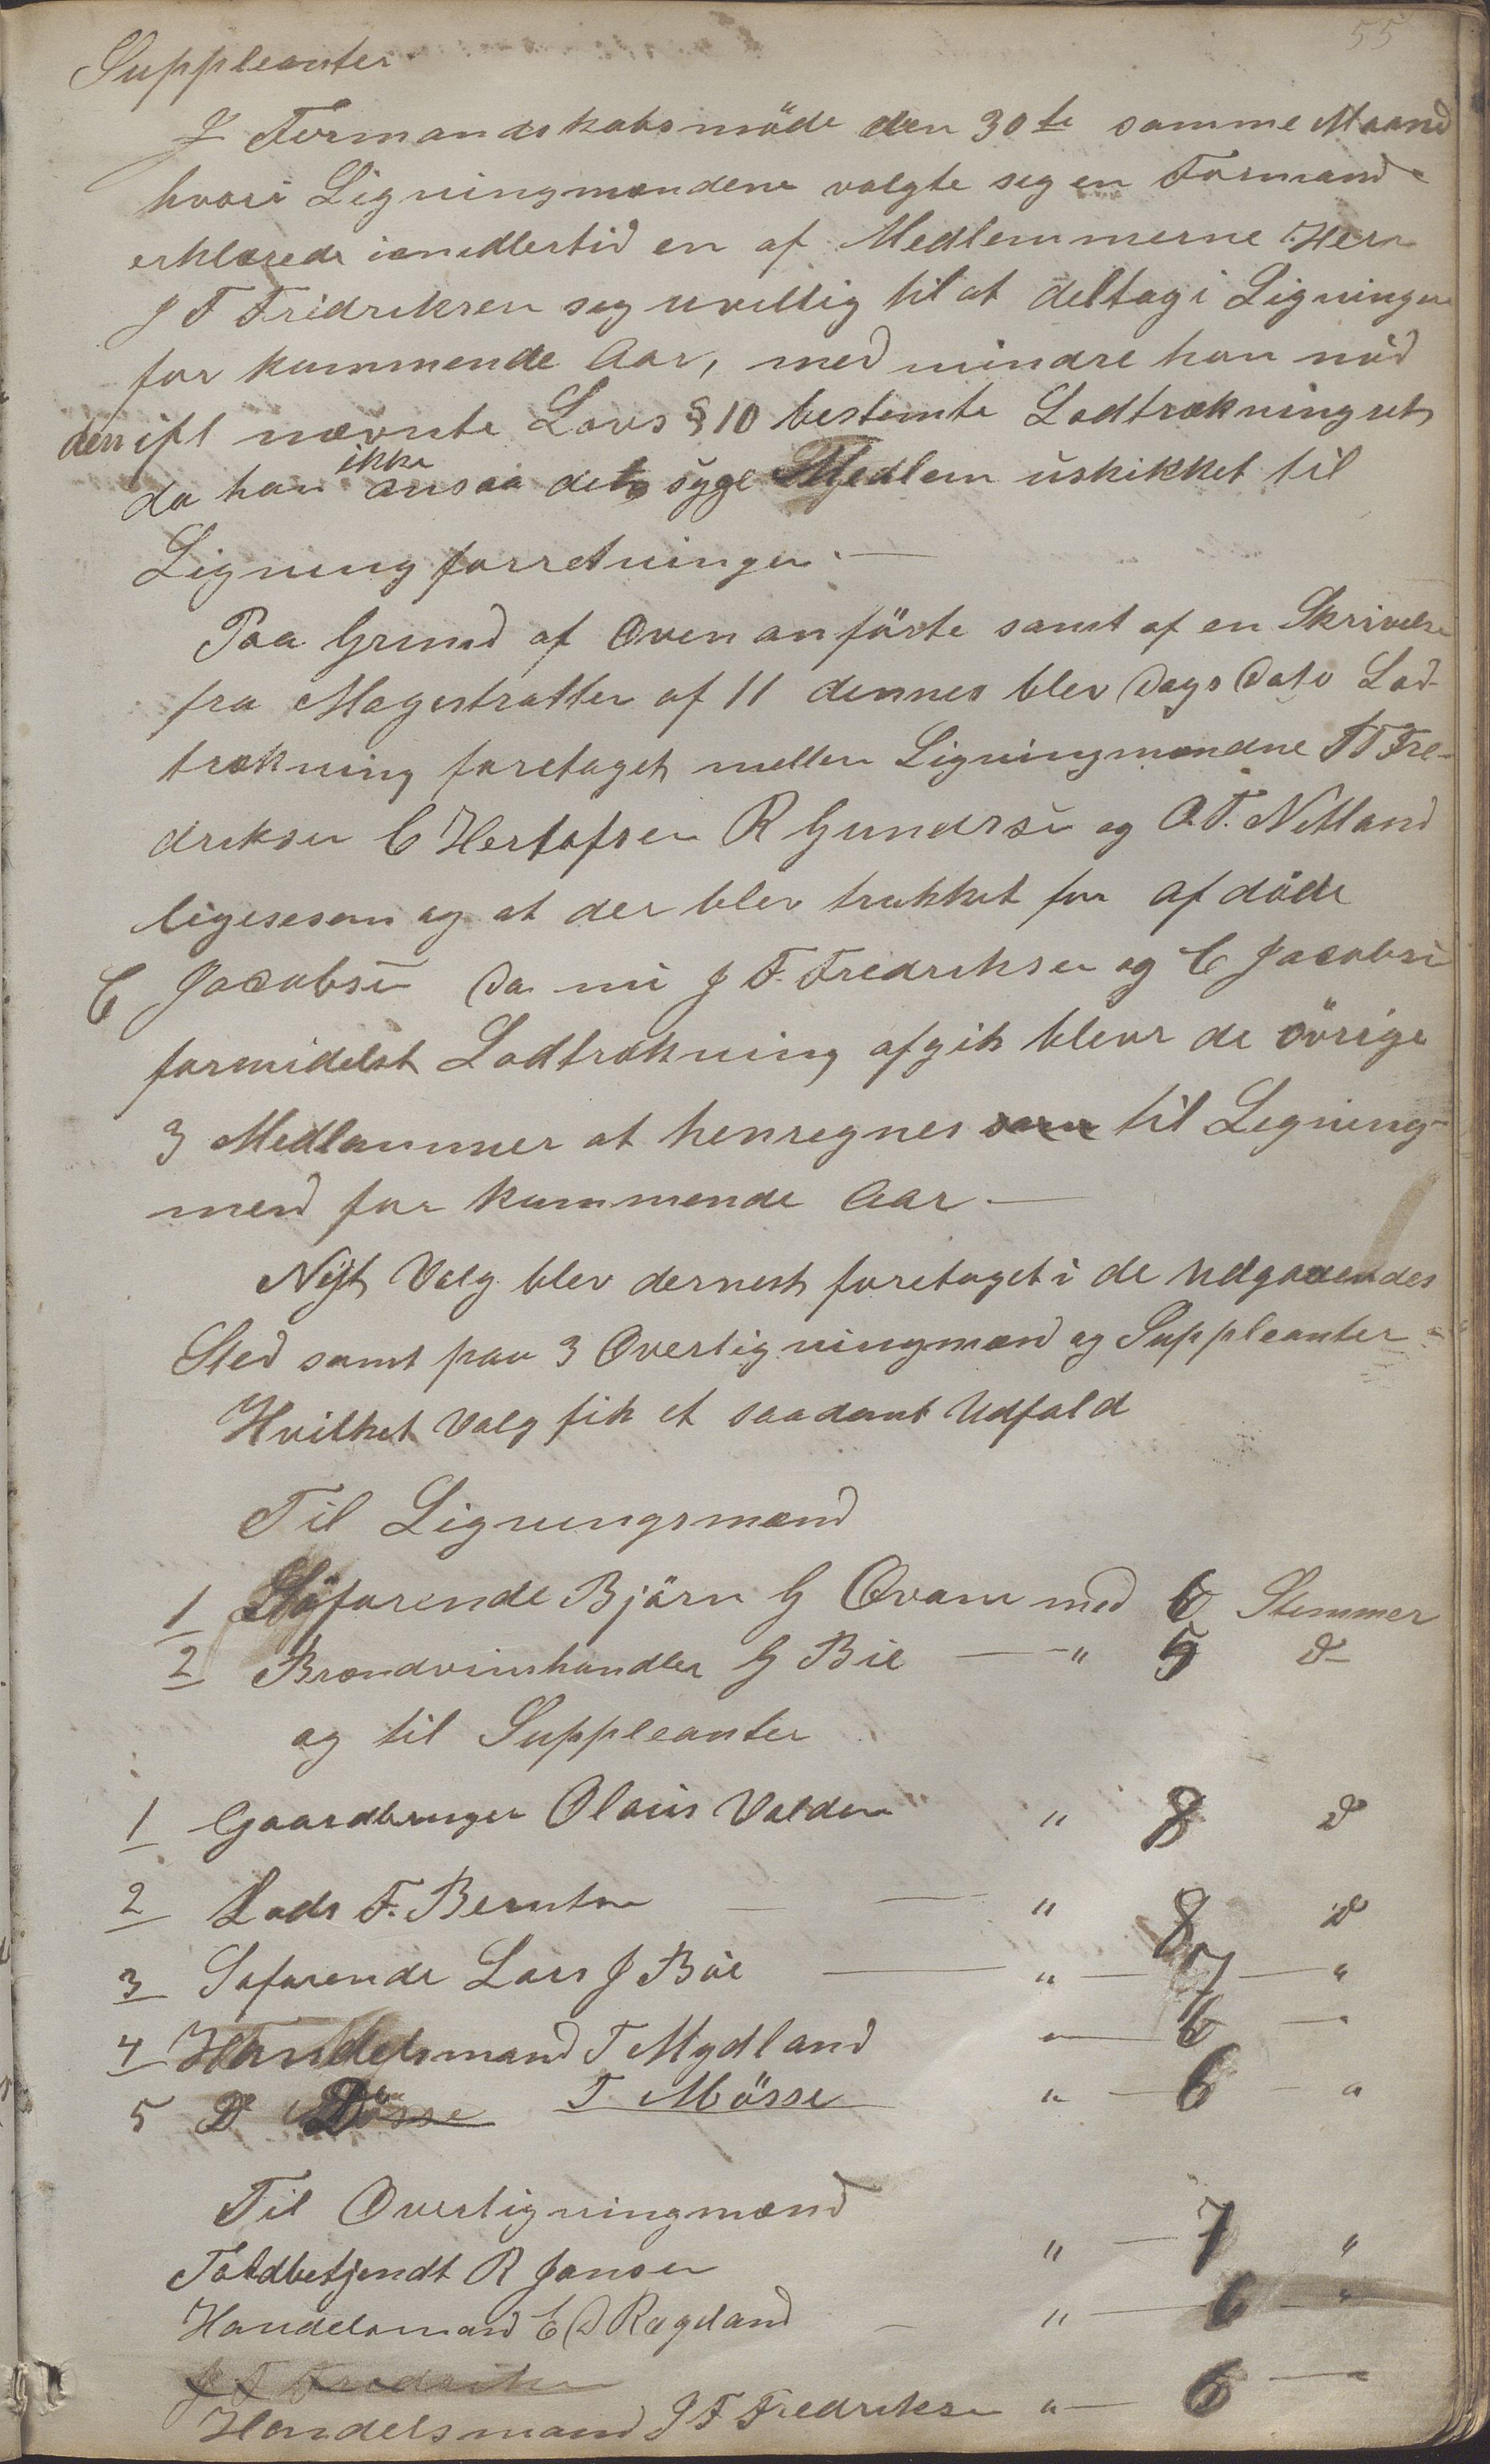 55
Suppleanter
I Formandskabsmöde den 30te samme Maand
hvori Ligningmændene valgte seg en Formand
erklærede imidlertid en af Medlemmerne Herr
J F Fridriksen seg uvillig til at deltag i Ligningen
for kommende Aar, med mindre han nöd
den ifl nævnte Lovs § 10 bestemte Lodtrækningret,
da han ikke ansaa det syge Medlem uskikket til
Ligning forretninger. —
Paa Grund af Ovenanförte samt af en Skrivelse
fra Magestratten af 11 dennes blev Dags Dato Lod-
trækning foretaget mellem Ligningmændne J F Fre-
driksen C Hertofsen R Gundrsen og O. T. Netland
ligesesom og at der blev trukket for afdöde
C Jacobsen Da nu J F. Fredriksen og C Jacobsen
formidelst Lodtrækning afgik blevr de övrige
3 Medlammer at henregnes som til Ligning-
mend for kommende Aar. —
Nyt Valg blev dernest foretaget i de udgaaendes
Sted samt paa 3 Overligningmænd og Suppleanter
Hvilket Valg fik et saadant Udfald
Til Ligningsmænd
1 Söfarende Björn G Ovane med 6 Stemmer
2 Brændvinshandler G Bie — " 5 D—
og til Suppleanter
1 Gaardbruger Olaus Valden " 8 D
2 Lods F. Berntsen — " 8 D
3 Söfarende Lars J Böe — " — 7 — "
4 Handelsmand T Mydland " — 6 — "
5 D Dösse T Mösse " — 6 — "
Til Overligningmænd
Toldbetjendt R Jansen " — 7 "
Handelsmand E D Rægeland — " — 6 — "
J F Fredriksen
Handelsmand J F Fredriksen " — 6 — "